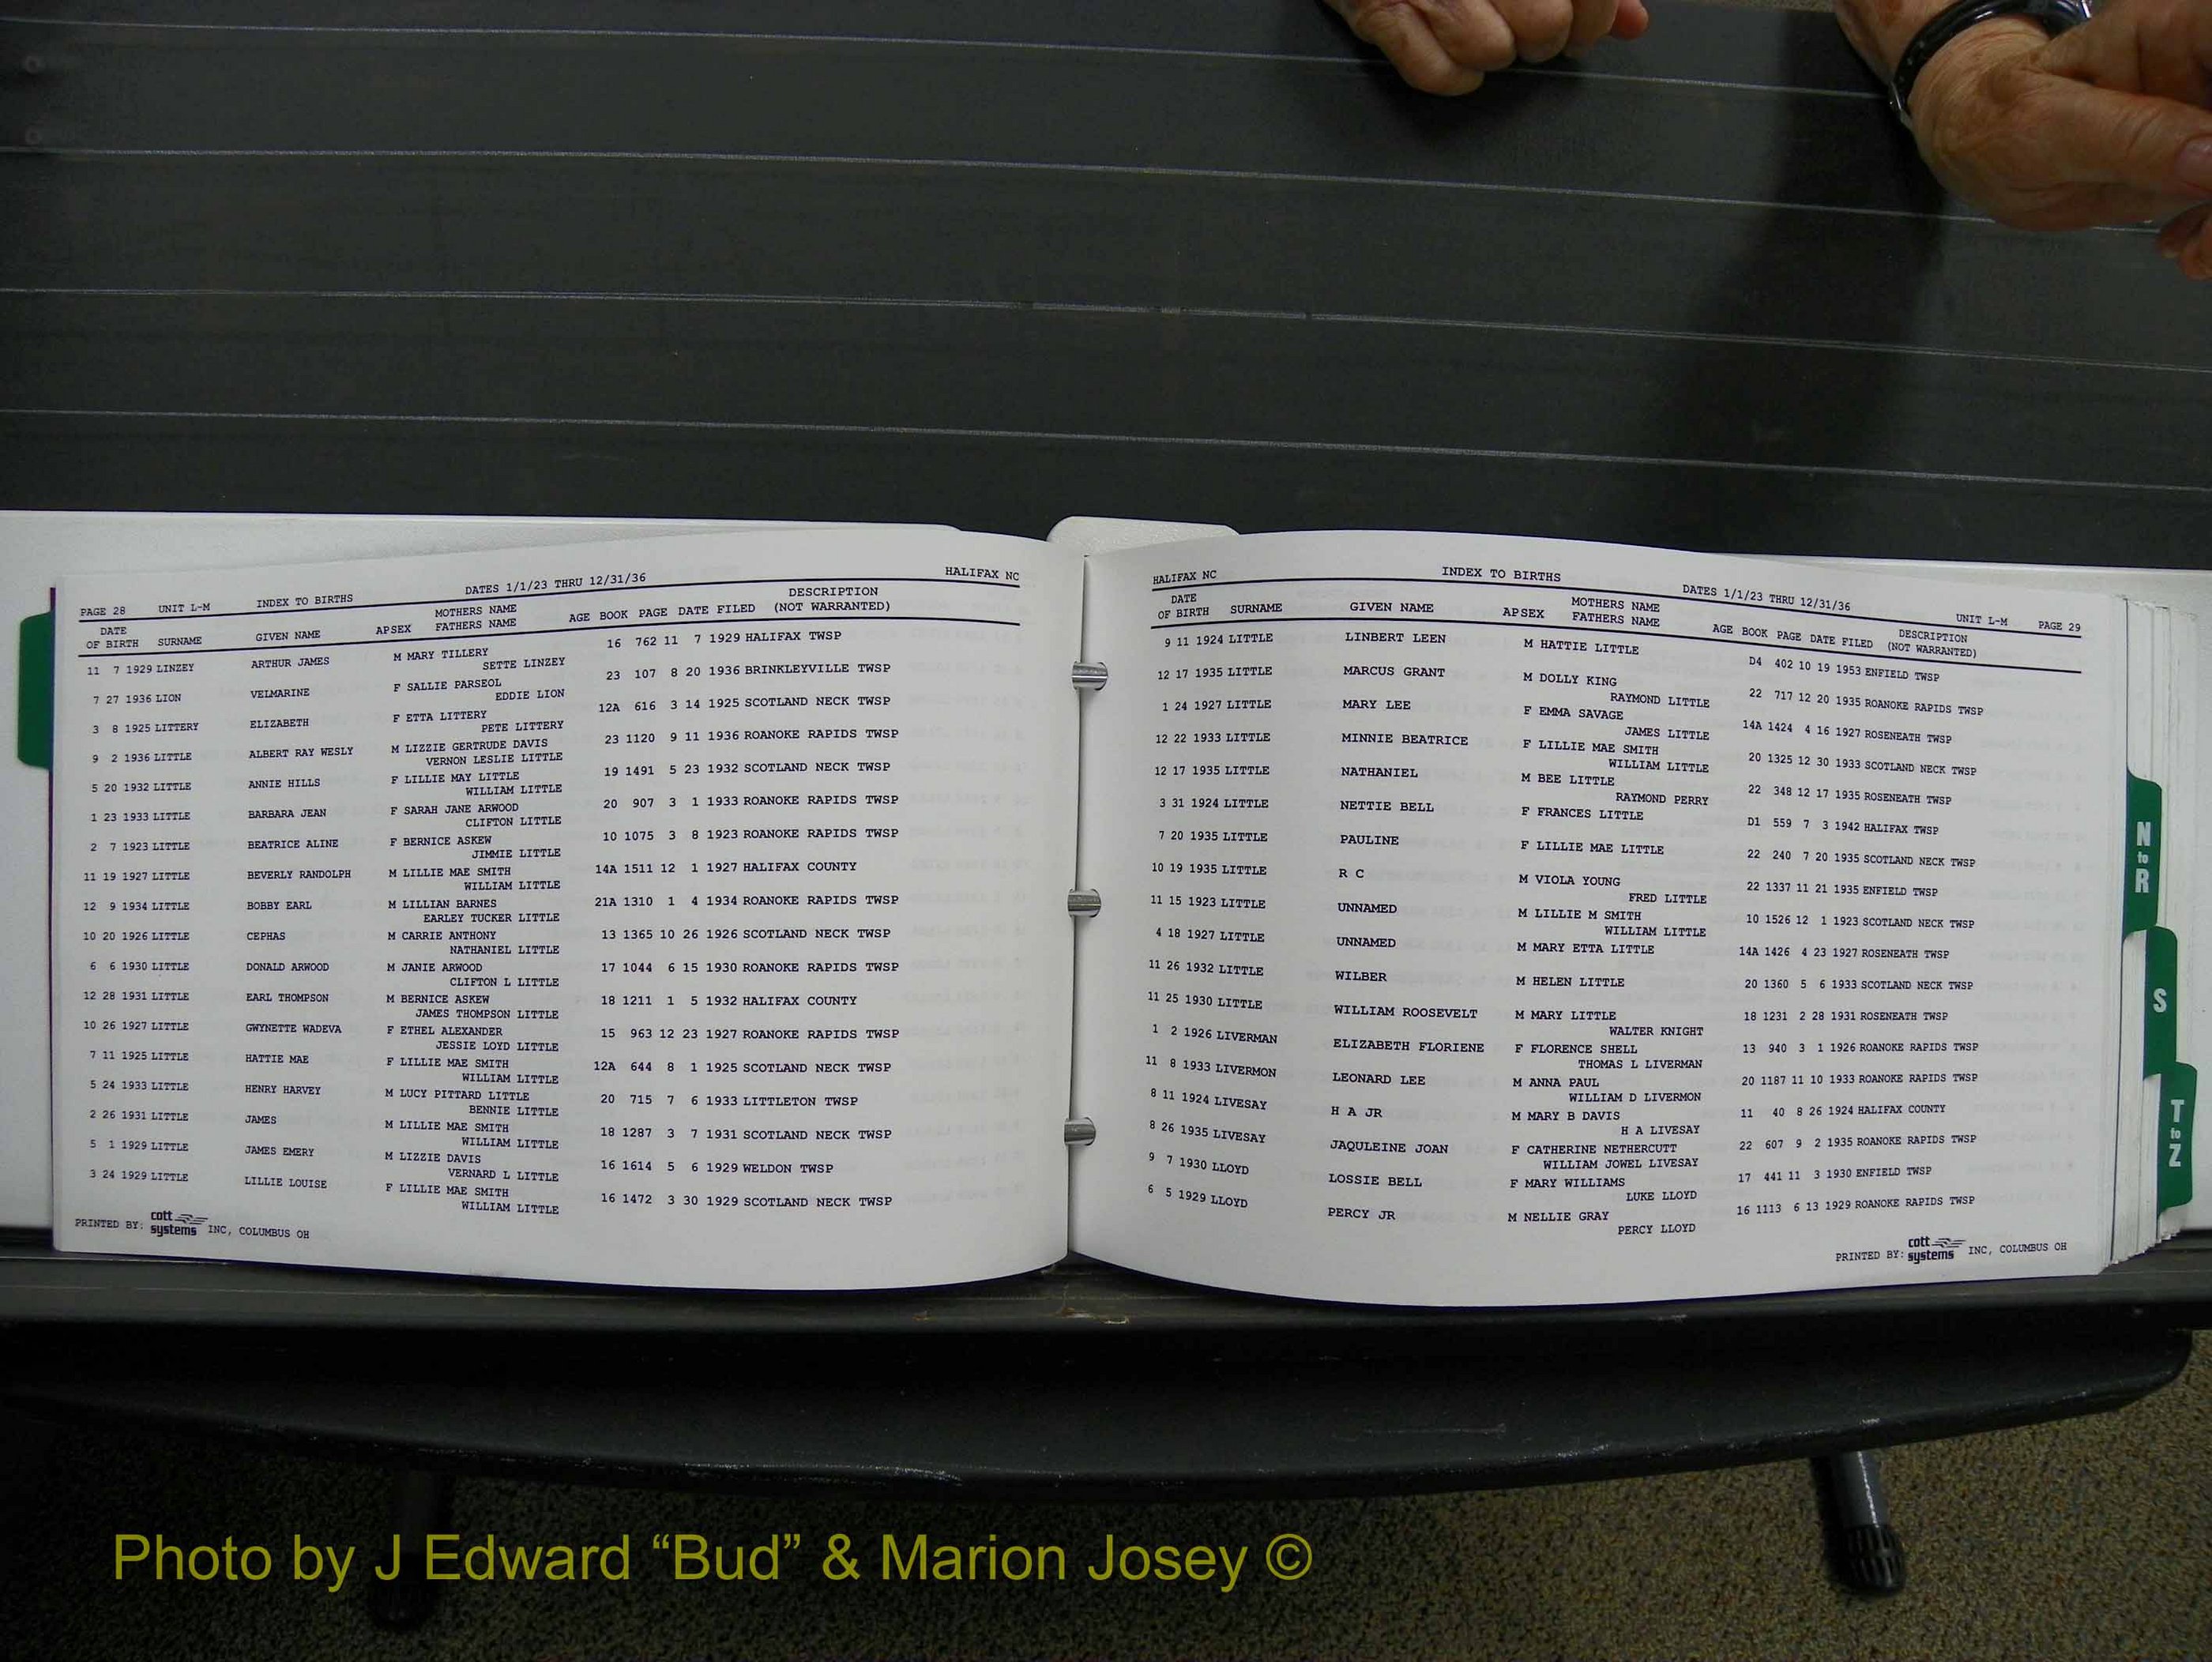 PAGE 28 UNIT L-M INDEX TO BIRTHS DATES 1/1/23 THRU 12/31/36 HALIFAX NC
DATE OF BIRTH SURNAME GIVEN NAME AP SEX MOTHERS NAME FATHERS NAME AGE BOOK PAGE DATE FILED DESCRIPTION (NOT WARRANTED)
11 7 1929 LINZEY ARTHUR JAMES M MARY TILLERY 16 762 11 7 1929 HALIFAX TWSP
SETTE LINZEY
7 27 1936 LION VELMARINE F SALLIE PARSEOL 23 107 8 20 1936 BRINKLEYVILLE TWSP
EDDIE LION
3 8 1925 LITTERY ELIZABETH F ETTA LITTERY 12A 616 3 14 1925 SCOTLAND NECK TWSP
PETE LITTERY
9 2 1936 LITTLE ALBERT RAY WESLY M LIZZIE GERTRUDE DAVIS 23 1120 9 11 1936 ROANOKE RAPIDS TWSP
VERNON LESLIE LITTLE
5 20 1932 LITTLE ANNIE HILLS F LILLIE MAY LITTLE 19 1491 5 23 1932 SCOTLAND NECK TWSP
WILLIAM LITTLE
1 23 1933 LITTLE BARBARA JEAN F SARAH JANE ARWOOD 20 907 3 1 1933 ROANOKE RAPIDS TWSP
CLIFTON LITTLE
2 7 1923 LITTLE BEATRICE ALINE F BERNICE ASKEW 10 1075 3 8 1923 ROANOKE RAPIDS TWSP
JIMMIE LITTLE
11 19 1927 LITTLE BEVERLY RANDOLPH M LILLIE MAE SMITH 14A 1511 12 1 1927 HALIFAX COUNTY
WILLIAM LITTLE
12 9 1934 LITTLE BOBBY EARL M LILLIAN BARNES 21A 1310 1 4 1934 ROANOKE RAPIDS TWSP
EARLEY TUCKER LITTLE
10 20 1926 LITTLE CEPHAS M CARRIE ANTHONY 13 1365 10 26 1926 SCOTLAND NECK TWSP
NATHANIEL LITTLE
6 6 1930 LITTLE DONALD ARWOOD M JANIE ARWOOD 17 1044 6 15 1930 ROANOKE RAPIDS TWSP
CLIFTON L LITTLE
12 28 1931 LITTLE EARL THOMPSON M BERNICE ASKEW 18 1211 1 5 1932 HALIFAX COUNTY
JAMES THOMPSON LITTLE
10 26 1927 LITTLE GWYNETTE WADEVA F ETHEL ALEXANDER 15 963 12 23 1927 ROANOKE RAPIDS TWSP
JESSIE LOYD LITTLE
7 11 1925 LITTLE HATTIE MAE F LILLIE MAE SMITH 12A 644 8 1 1925 SCOTLAND NECK TWSP
WILLIAM LITTLE
5 24 1933 LITTLE HENRY HARVEY M LUCY PITTARD LITTLE 20 715 7 6 1933 LITTLETON TWSP
BENNIE LITTLE
2 26 1931 LITTLE JAMES M LILLIE MAE SMITH 18 1287 3 7 1931 SCOTLAND NECK TWSP
WILLIAM LITTLE
5 1 1929 LITTLE JAMES EMERY M LIZZIE DAVIS 16 1614 5 6 1929 WELDON TWSP
VERNARD L LITTLE
3 24 1929 LITTLE LILLIE LOUISE F LILLIE MAE SMITH 16 1472 3 30 1929 SCOTLAND NECK TWSP
WILLIAM LITTLE
PRINTED BY: cott systems INC, COLUMBUS OH
HALIFAX NC INDEX TO BIRTHS DATES 1/1/23 THRU 12/31/36 UNIT L-M PAGE 29
DATE OF BIRTH SURNAME GIVEN NAME AP SEX MOTHERS NAME FATHERS NAME AGE BOOK PAGE DATE FILED DESCRIPTION (NOT WARRANTED)
9 11 1924 LITTLE LINBERT LEEN M HATTIE LITTLE D4 402 10 19 1953 ENFIELD TWSP
12 17 1935 LITTLE MARCUS GRANT M DOLLY KING 22 717 12 20 1935 ROANOKE RAPIDS TWSP
RAYMOND LITTLE
1 24 1927 LITTLE MARY LEE F EMMA SAVAGE 14A 1424 4 16 1927 ROSENEATH TWSP
JAMES LITTLE
12 22 1933 LITTLE MINNIE BEATRICE F LILLIE MAE SMITH 20 1325 12 30 1933 SCOTLAND NECK TWSP
WILLIAM LITTLE
12 17 1935 LITTLE NATHANIEL M BEE LITTLE 22 348 12 17 1935 ROSENEATH TWSP
RAYMOND PERRY
3 31 1924 LITTLE NETTIE BELL F FRANCES LITTLE D1 559 7 3 1942 HALIFAX TWSP
7 20 1935 LITTLE PAULINE F LILLIE MAE LITTLE 22 240 7 20 1935 SCOTLAND NECK TWSP
10 19 1935 LITTLE R C M VIOLA YOUNG 22 1337 11 21 1935 ENFIELD TWSP
FRED LITTLE
11 15 1923 LITTLE UNNAMED M LILLIE M SMITH 10 1526 12 1 1923 SCOTLAND NECK TWSP
WILLIAM LITTLE
4 18 1927 LITTLE UNNAMED M MARY ETTA LITTLE 14A 1426 4 23 1927 ROSENEATH TWSP
11 26 1932 LITTLE WILBER M HELEN LITTLE 20 1360 5 6 1933 SCOTLAND NECK TWSP
11 25 1930 LITTLE WILLIAM ROOSEVELT M MARY LITTLE 18 1231 2 28 1931 ROSENEATH TWSP
WALTER KNIGHT
1 2 1926 LIVERMAN ELIZABETH FLORIENE F FLORENCE SHELL 13 940 3 1 1926 ROANOKE RAPIDS TWSP
THOMAS L LIVERMAN
11 8 1933 LIVERMON LEONARD LEE M ANNA PAUL 20 1187 11 10 1933 ROANOKE RAPIDS TWSP
WILLIAM D LIVERMON
8 11 1924 LIVESAY H A JR M MARY B DAVIS 11 40 8 26 1924 HALIFAX COUNTY
H A LIVESAY
8 26 1935 LIVESAY JAQULEINE JOAN F CATHERINE NETHERCUTT 22 607 9 2 1935 ROANOKE RAPIDS TWSP
WILLIAM JOWEL LIVESAY
9 7 1930 LLOYD LOSSIE BELL F MARY WILLIAMS 17 441 11 3 1930 ENFIELD TWSP
LUKE LLOYD
6 5 1929 LLOYD PERCY JR M NELLIE GRAY 16 1113 6 13 1929 ROANOKE RAPIDS TWSP
PERCY LLOYD
PRINTED BY: cott systems INC, COLUMBUS OH
N to R
S
T to Z
Photo by J Edward “Bud” & Marion Josey ©